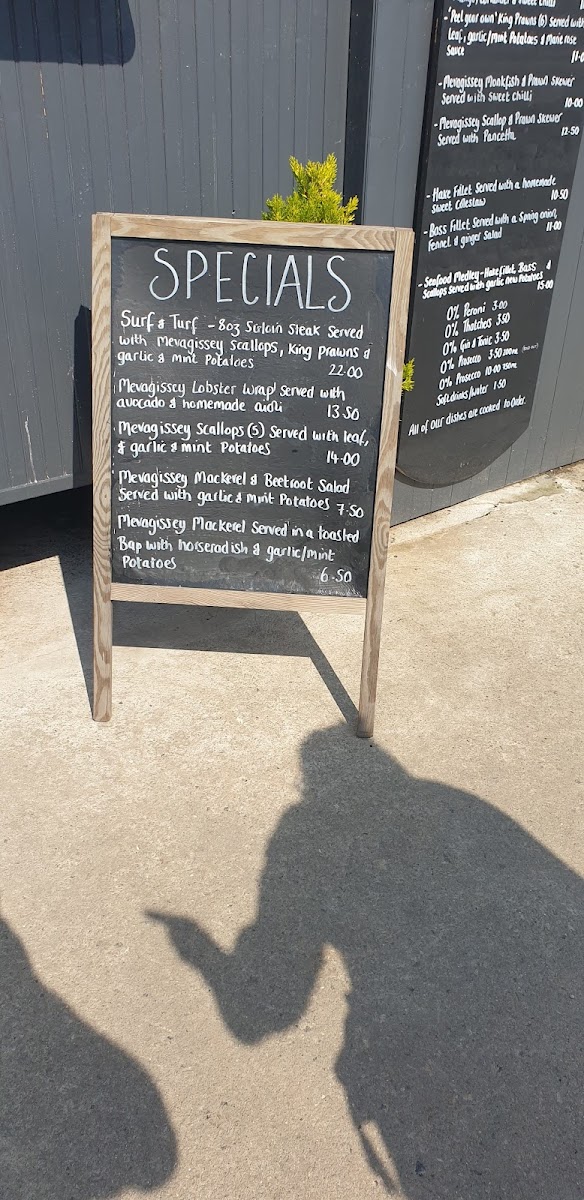 SPECIALS
Surf & Turf - 8oz Sirloin Steak Served
with Mevagissey Scallops, King Prawns &
garlic & mint Potatoes 22.00
Mevagissey Lobster Wrap' Served with
avocado & homemade aioli 13.50
Mevagissey Scallops (5) Served with leaf,
& garlic & mint Potatoes 14.00
Mevagissey Mackerel & Beetroot Salad
Served with garlic & mint Potatoes 7.50
Mevagissey Mackerel Served in a toasted
Bap with horseradish & garlic/mint
Potatoes 6.50
- 'Peel your own' King Prawns (6) Served with
leaf, garlic/mint Potatoes & Marie rose
Sauce
- Mevagissey Monkfish & Prawn Skewer
Served with Sweet Chilli 10.00
- Mevagissey Scallop & Prawn Skewer
Served with Pancetta 12.50
- Hake Fillet Served with a homemade
Sweet Coleslaw 10.50
- Bass Fillet Served with a Spring onion,
Fennel & ginger Salad 11.00
- Seafood Medley - Hake fillet, Bass &
Scallops Served with garlic new Potatoes 15.00
0% Peroni 3.00
0% Thatchers 3.50
0% Gin & Tonic 3.50
0% Prosecco 3.50 200ml
0% Prosecco 10.00 750ml
Soft drinks/Water 1.50
All of our dishes are cooked to Order.